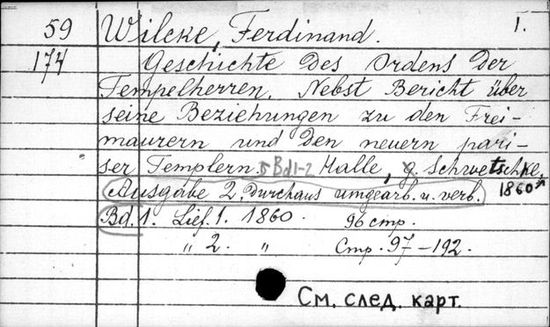 59 Wilcke, Ferdinand. 1.
174 Geschichte des Ordens der
Tempelherren. Nebst Bericht über
seine Beziehungen zu den Frei-
maurern und den neuern pari-
ser Templern. 5 Bd1-2 Halle, G. Schwetschke,
Ausgabe 2. durchaus umgearb. u. verb. 1860
Bd. 1. Lief. 1. 1860. 96 стр.
„ 2. „ Стр. 97-192.
См. след. карт.